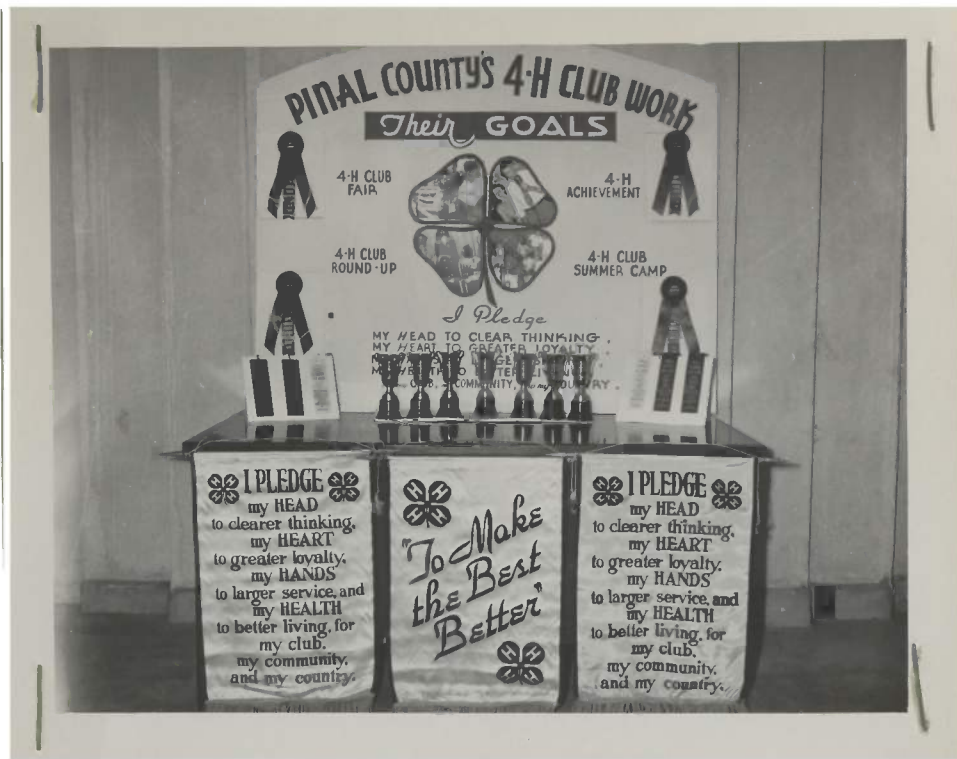 PINAL COUNTY'S 4-H CLUB WORK
Their GOALS
4-H CLUB
FAIR
4-H
ACHIEVEMENT
4-H CLUB
ROUND-UP
4-H CLUB
SUMMER CAMP
I Pledge
MY HEAD TO CLEAR THINKING.
MY HEART TO GREATER LOYALTY.
CLUB, COMMUNITY, my COUNTRY.
I PLEDGE
my HEAD
to clearer thinking,
my HEART
to greater loyalty,
my HANDS
to larger service, and
my HEALTH
to better living, for
my club,
my community,
and my country.
H H H H
"To Make
the Best
Better"
H H H H
I PLEDGE
my HEAD
to clearer thinking,
my HEART
to greater loyalty,
my HANDS
to larger service, and
my HEALTH
to better living, for
my club,
my community,
and my country.